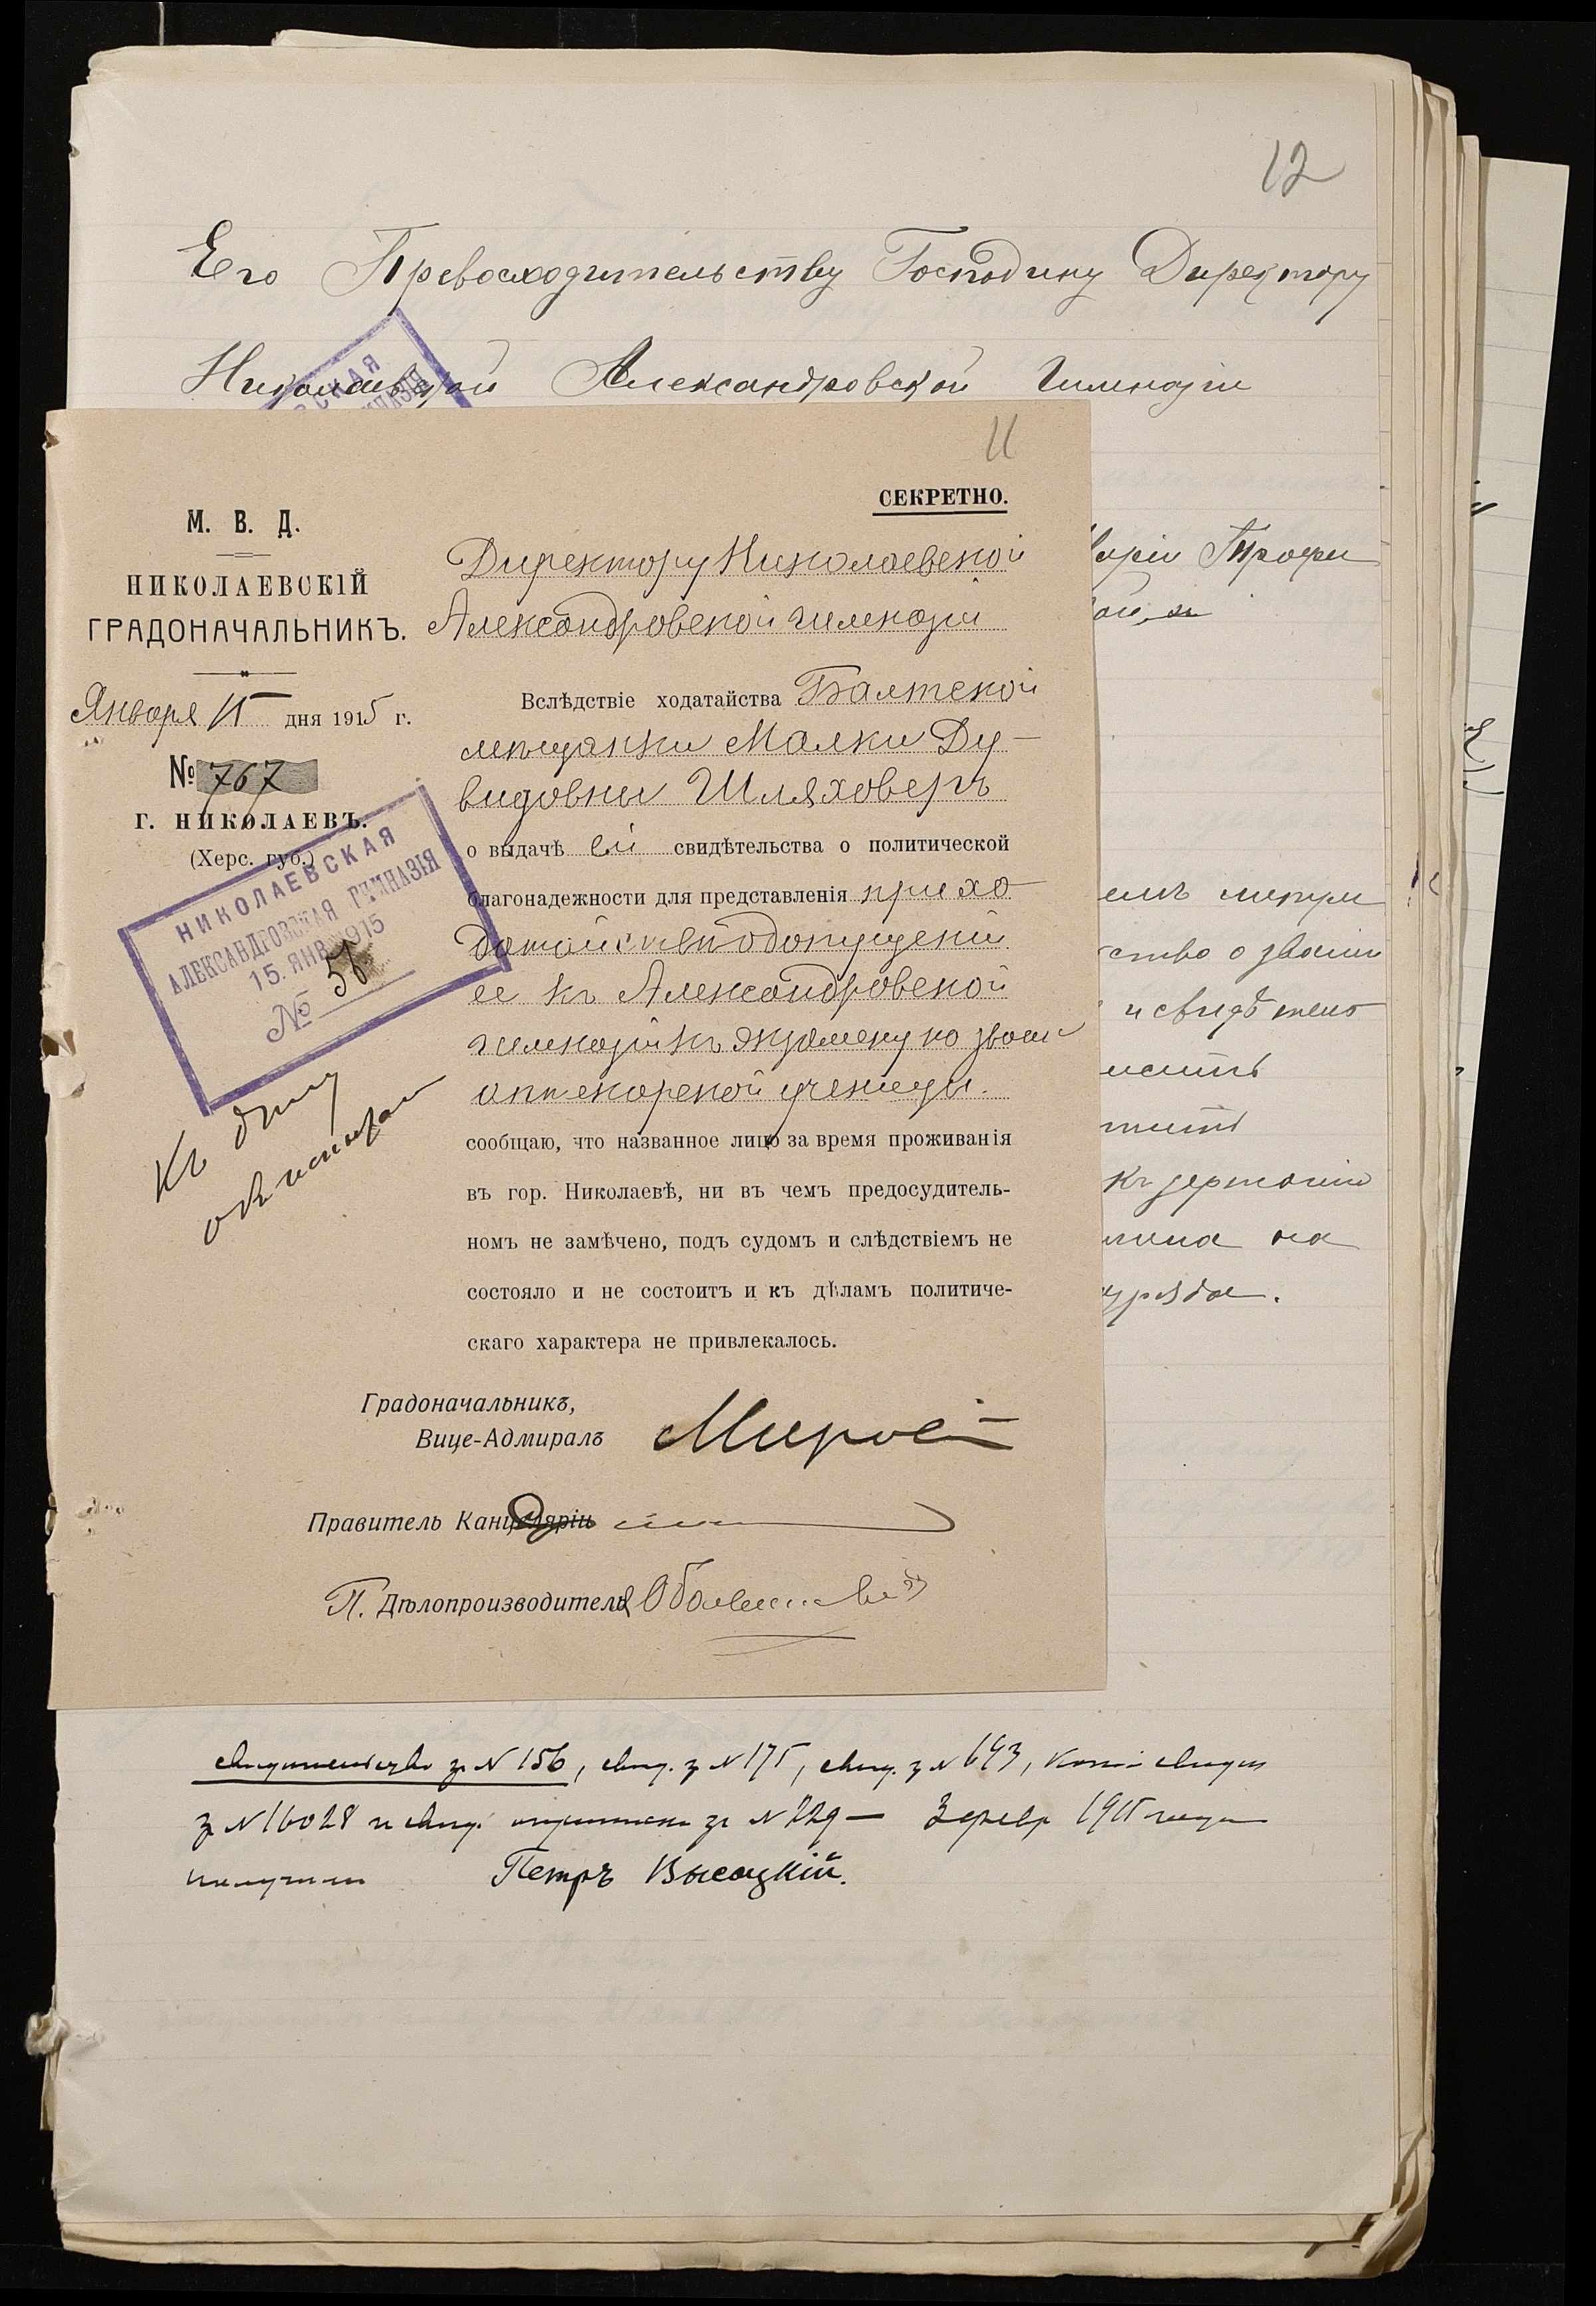 12
Его Превосходительству Господину Директору
Николаевской Александровской Гимназіи
11
СЕКРЕТНО.
М. В. Д.
НИКОЛАЕВСКІЙ
ГРАДОНАЧАЛЬНИКЪ.
Января дня 1915 г.
№ 767
Г. НИКОЛАЕВЪ.
(Херс. губ.)
НИКОЛАЕВСКАЯ
АЛЕКСАНДРОВСКАЯ ГИМНАЗІЯ
15. ЯНВ 1915
№ 56
Къ дѣлу
Директору Николаевской
Александровской гимназіи
Вслѣдствіе ходатайства Балтской
мѣщанки Малки Ду-
видовны Шляховеръ
о выдачѣ ей свидѣтельства о политической
благонадежности для представленія при хо
датайствѣ о допущеніи
ее къ Александровской
гимназіи къ экзамену на званіе
аптекарской ученицы.
сообщаю, что названное лицо за время проживанія
въ гор. Николаевѣ, ни въ чемъ предосудитель-
номъ не замѣчено, подъ судомъ и слѣдствіемъ не
состояло и не состоитъ и къ дѣламъ политиче-
скаго характера не привлекалось.
Градоначальникъ,
Вице-Адмиралъ
Правитель Канцеляріи
П. Дѣлопроизводителя
ство о званіи
и свидѣтель
на
уѣзда.
свидѣтельство за № 156, свид. за № 175, свид. за № 643, копію свидѣт
за № 16028 и свид. за № 229 — 3 февр 1915 года
получилъ Петръ Высоцкій.